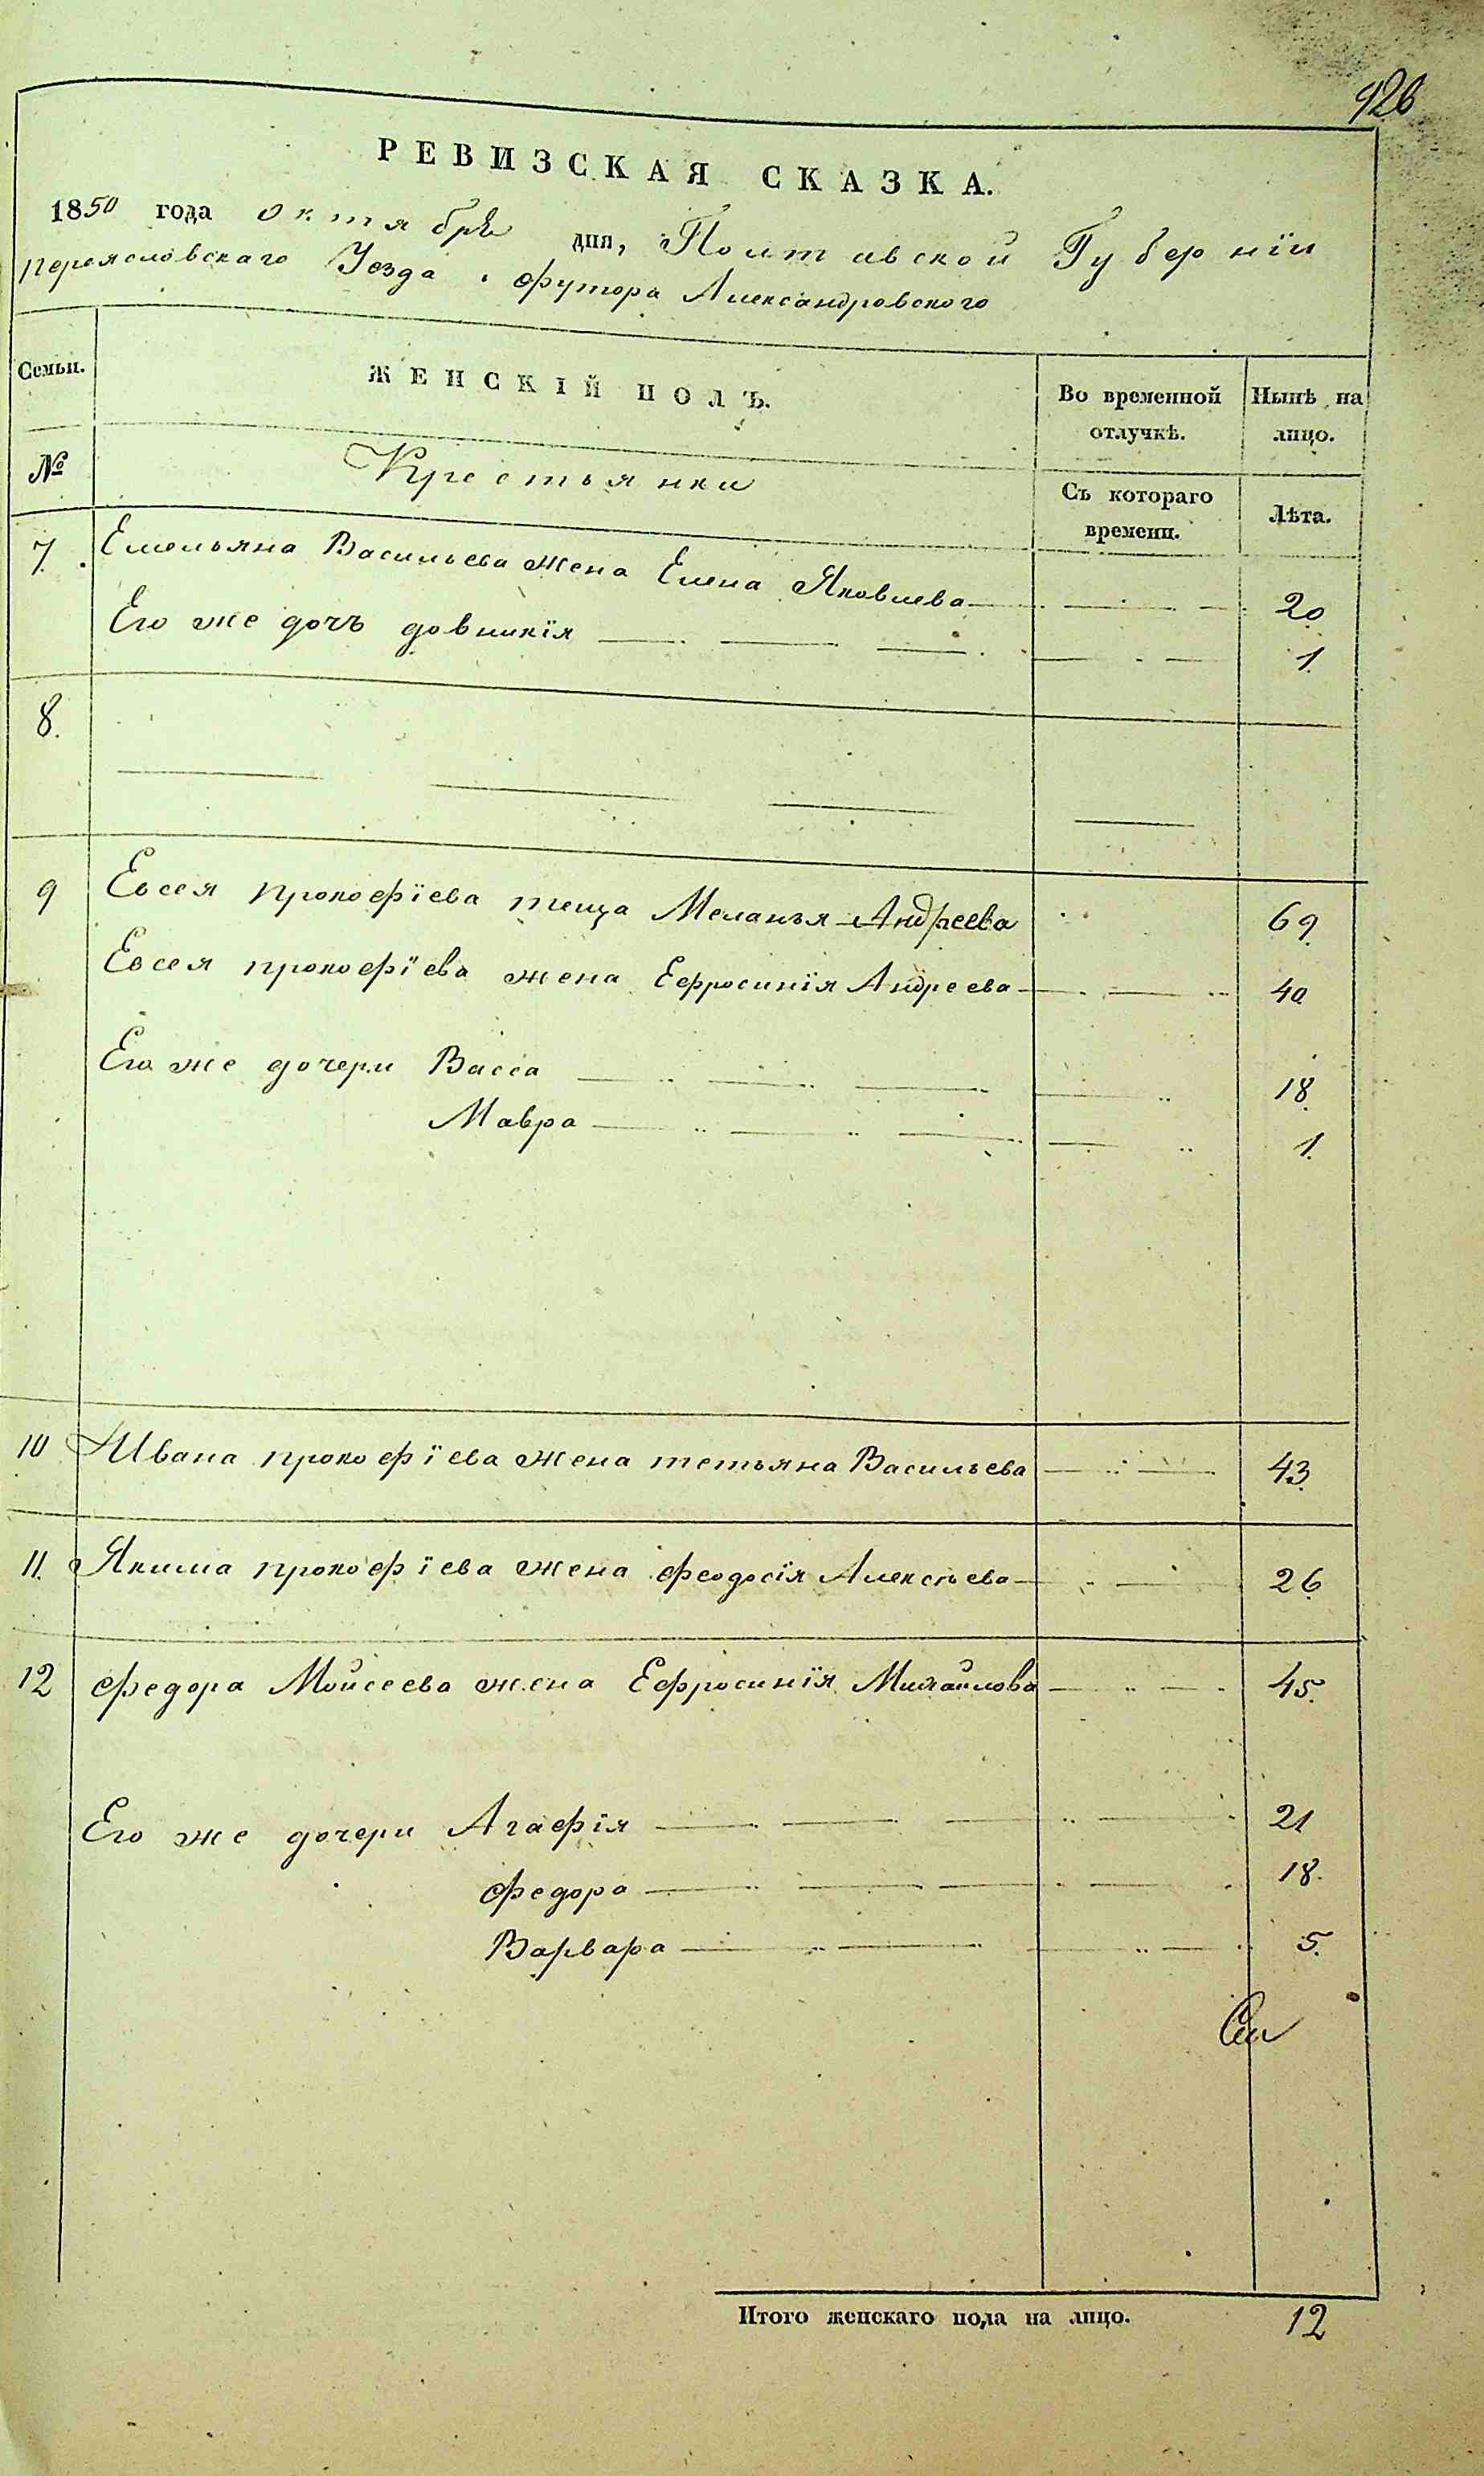 926
РЕВИЗСКАЯ СКАЗКА.
1850 года октября дня, Полтавской Губернїи
переясловскаго Уезда футора Александровского
Семьи. ЖЕНСКІЙ ПОЛЪ. Во временной отлучкѣ. Нынѣ на лицо.
№ Крестьянки Съ котораго времени. Лѣта.
7. Емельяна Васильева жена Елена Яковлева 20
Его же дочъ довникія 1.
8.
9 Евсея прокофїева теща Меланья Андреева 69.
Евсея прокофїева жена Ефросинїя Андреева 40
Его же дочери Васса 18
Мавра 1.
10 Ивана прокофїева жена тетьяна Васильева 43
11. Якима прокофїева жена феодосїя Алексѣева 26
12 федора Мойсеева жена Ефросинїя Михайлова 45.
Его же дочери Агафїя 21
федора 18.
Варвара 5.
Итого женскаго пола на лицо. 12